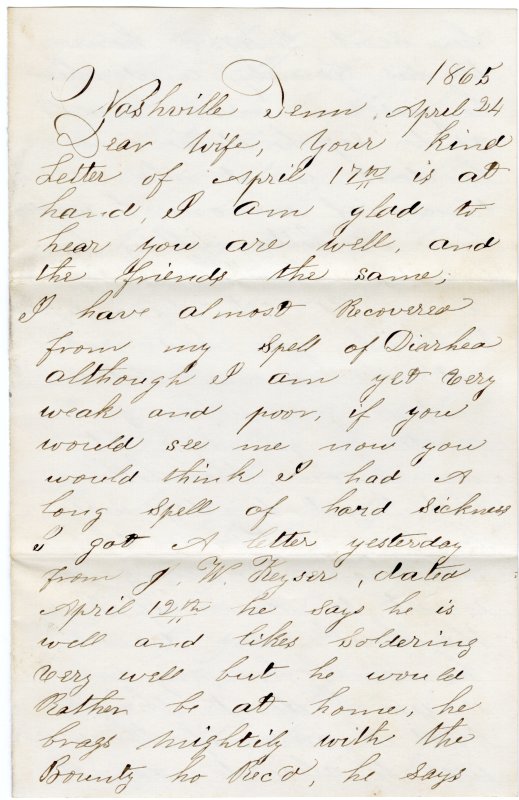 1865
Nashville Tenn, April 24
Dear Wife, Your kind
Letter of April 17th is at
hand, I am glad to
hear you are well, and
the friends the same,
I have almost Recovered
from my Spell of Diarhea
although I am yet very
weak and poor, if you
would see me now you
would think I had A
long Spell of hard Sickness
I got A letter yesterday
from J. W. Keyser, dated
April 12th he Says he is
well and likes Soldering
very well but he would
Rather be at home, he
brags mightily with the
Bounty ho Rec'd, he Says